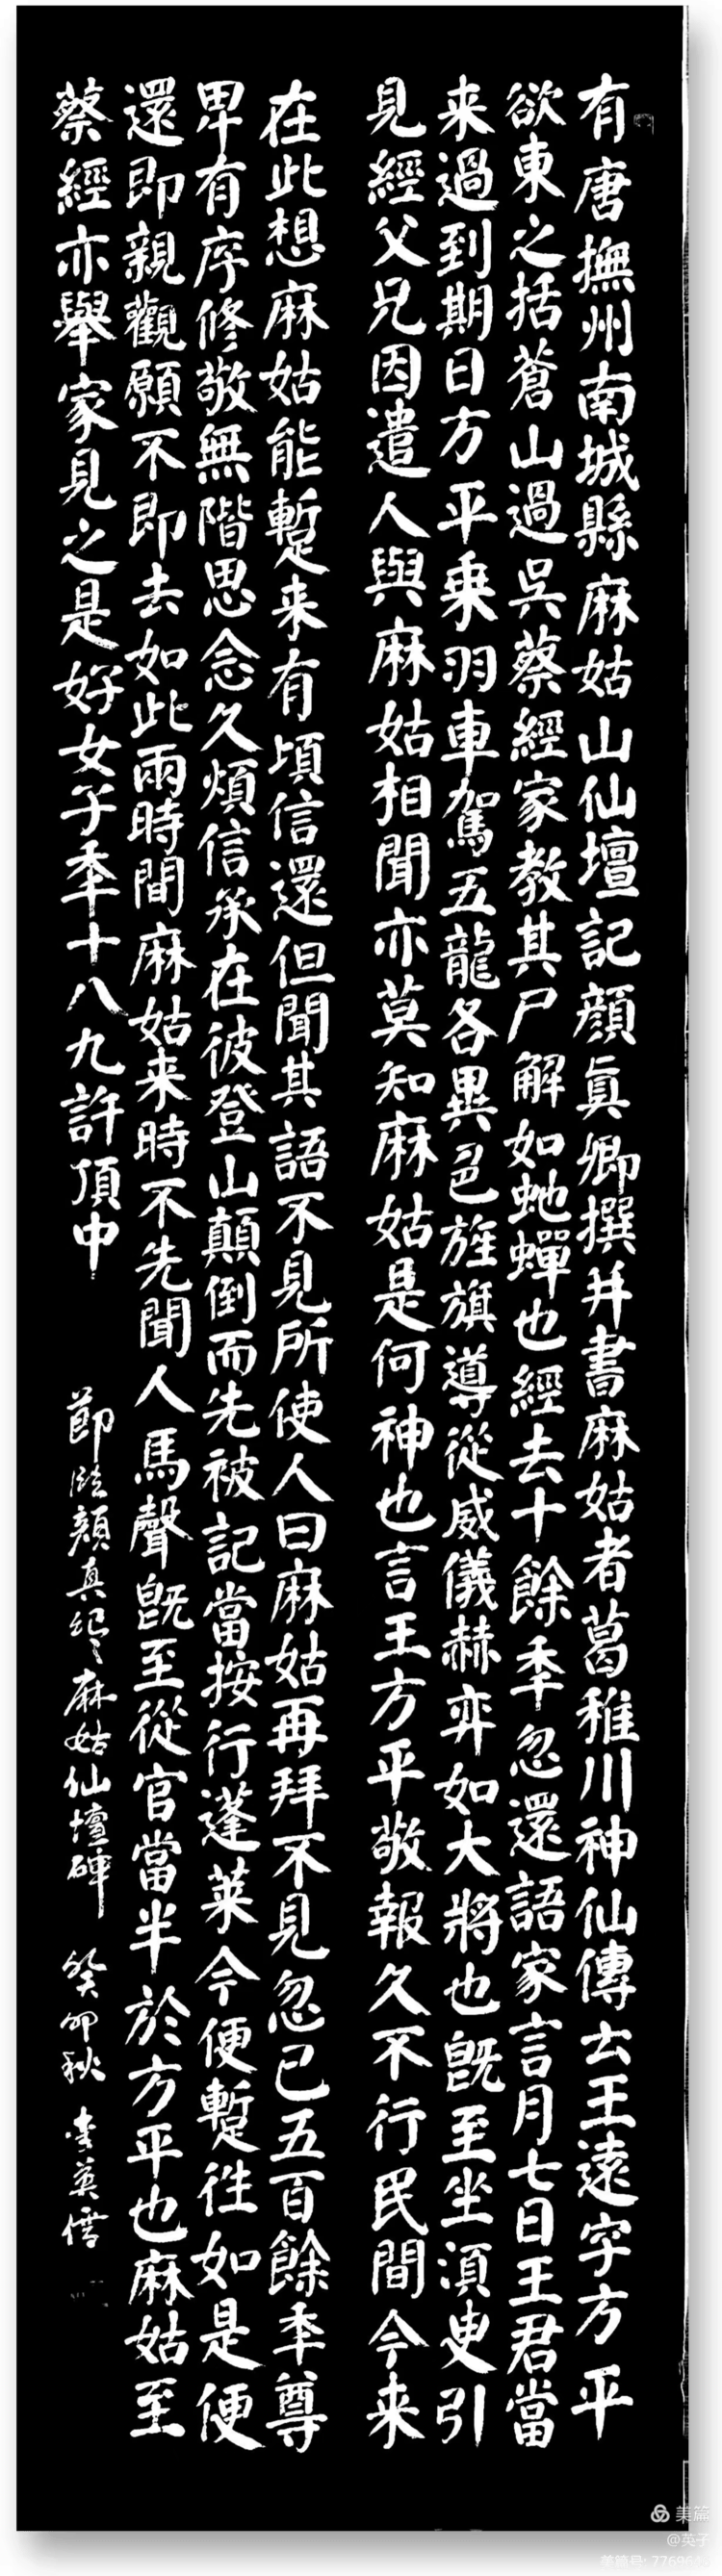 有唐撫州南城縣麻姑山仙壇記顔真卿撰并書麻姑者葛稚川神仙傳云王遠字方平
欲東之括蒼山過吳蔡經家教其尸解如虵蟬也經去十餘秊忽還語家言月七日王君當
来過到期日方平乗羽車駕五龍各異色旌旗導從威儀赫弈如大將也既至坐湏臾引
見經父兄因遣人與麻姑相聞亦莫知麻姑是何神也言王方平敬報久不行民間今来
在此想麻姑能蹔来有頃信還但聞其語不見所使人曰麻姑再拜不見忽已五百餘秊尊
卑有序修敬無階思念久煩信承在彼登山顛倒而先被記當按行蓬莱今便蹔往如是便
還即親觀願不即去如此兩時間麻姑来時不先聞人馬聲既至從官當半於方平也麻姑至
蔡經亦舉家見之是好女子秊十八九許頂中
節臨顔真卿麻姑仙壇碑 癸卯秋 李英儒
美篇
@英子